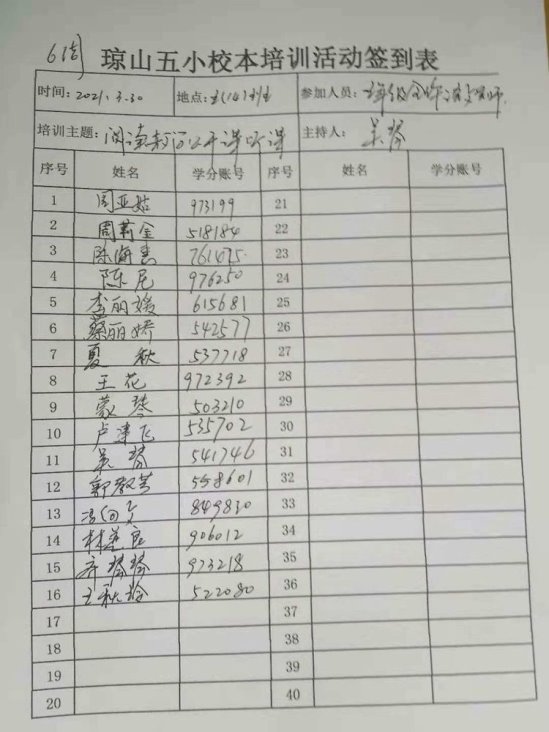 6周
琼山五小校本培训活动签到表
时间：2021.3.30 地点：五(14)教室 参加人员：
培训主题：阅读教学公开课听课 主持人：吴琴
序号 姓名 学分账号 序号 姓名 学分账号
1 周亚姑 973199 21
2 周莉金 518184 22
3 陈海燕 761475 23
4 陈尼 976250 24
5 李丽媛 615681 25
6 蔡丽娇 542577 26
7 夏秋 537718 27
8 王花 972392 28
9 蒙琴 503210 29
10 卢建飞 535702 30
11 吴琴 541746 31
12 郭教英 558601 32
13 849830 33
14 林差良 906012 34
15 琴琴 973218 35
16 王秋玲 522080 36
17 37
18 38
19 39
20 40